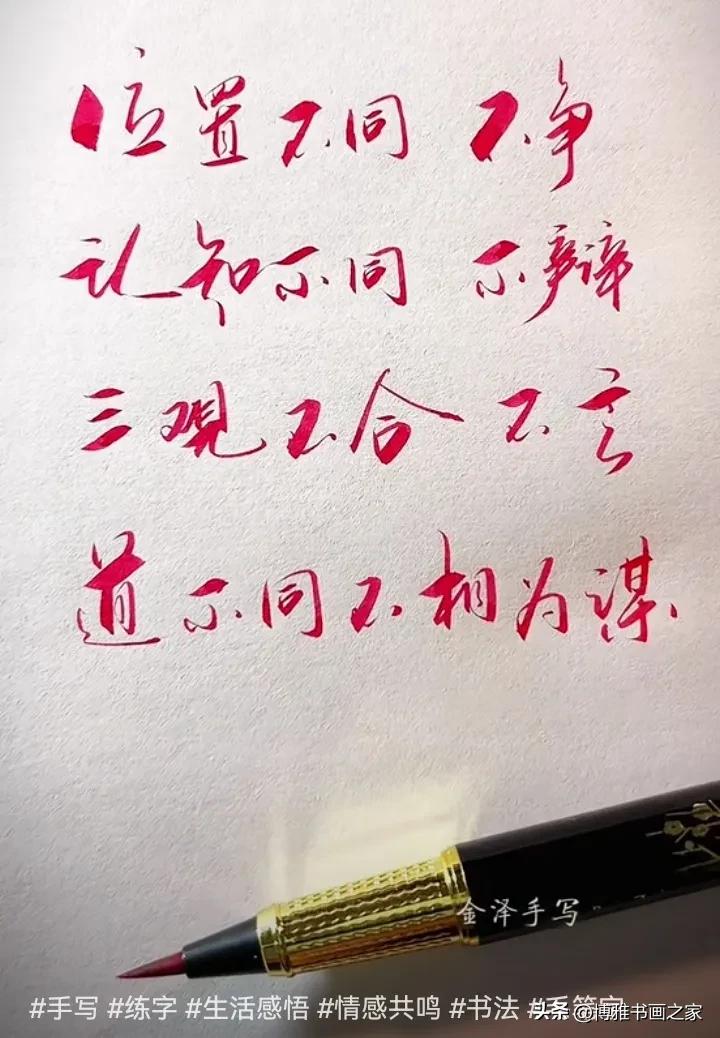 位置不同 不争
认知不同 不辩
三观不合 不言
道不同不相为谋
金泽手写
#手写 #练字 #生活感悟 #情感共鸣 #书法 #
头条 @博雅书画之家